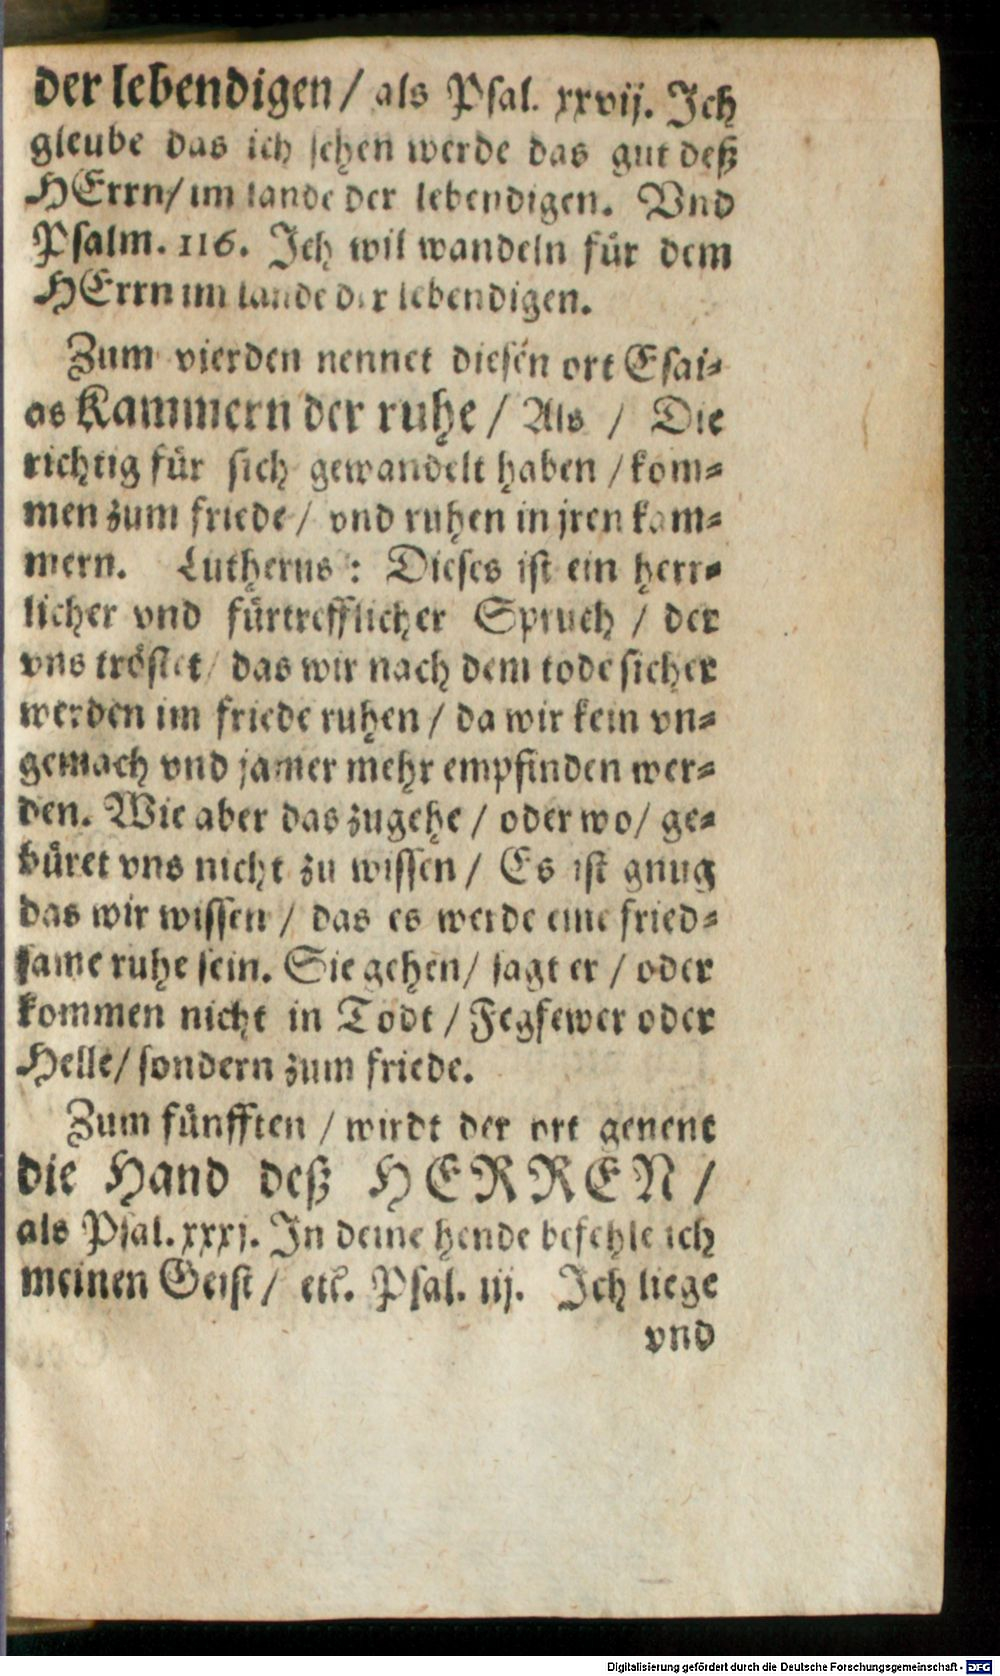 der lebendigen / als Psal. xxvij. Ich
gleube das ich sehen werde das gut deß
HErrn / im lande der lebendigen. Vnd
Psalm. 116. Ich wil wandeln für dem
HErrn im lande der lebendigen.
Zum vierden nennet diesen ort Esai-
as Kammern der ruhe / Als / Die
richtig für sich gewandelt haben / kom-
men zum friede / vnd ruhen in jren kam-
mern. Lutherus : Dieses ist ein herr-
licher vnd fürtrefflicher Spruch / der
vns tröstet / das wir nach dem tode sicher
werden im friede ruhen / da wir kein vn-
gemach vnd jamer mehr empfinden wer-
den. Wie aber das zugehe / oder wo / ge-
büret vns nicht zu wissen / Es ist gnug
das wir wissen / das es werde eine fried-
same ruhe sein. Sie gehen / sagt er / oder
kommen nicht in Todt / Fegfewer oder
Helle / sondern zum friede.
Zum fünfften / wirdt der ort genent
die Hand deß HERREN /
als Psal. xxxj. In deine hende befehle ich
meinen Geist / etc. Psal. iij. Ich liege
vnd
Digitalisierung gefördert durch die Deutsche Forschungsgemeinschaft - DFG